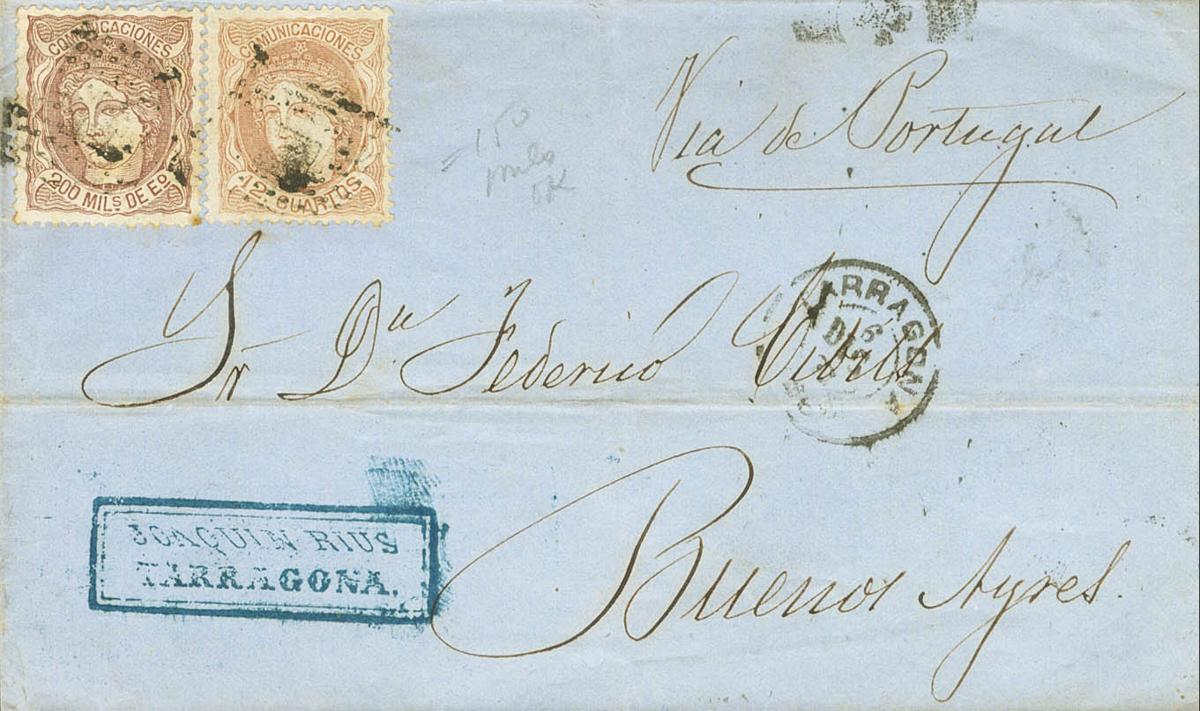 COMUNICACIONES
200 MILS DE Eo
COMUNICACIONES
12 CUARTOS
150
mils
OK
Via de Portugal
Sr Dn Federico
TARRAGONA
Buenos Ayres
JOAQUIN RIUS
TARRAGONA.